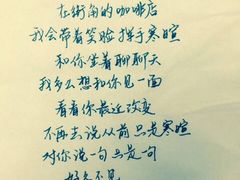 在街角的咖啡店
我会带着笑脸挥手寒暄
和你坐着聊聊天
我多么想和你见一面
看看你最近改变
不再去说从前只是寒暄
对你说一句只是一句
好久不见